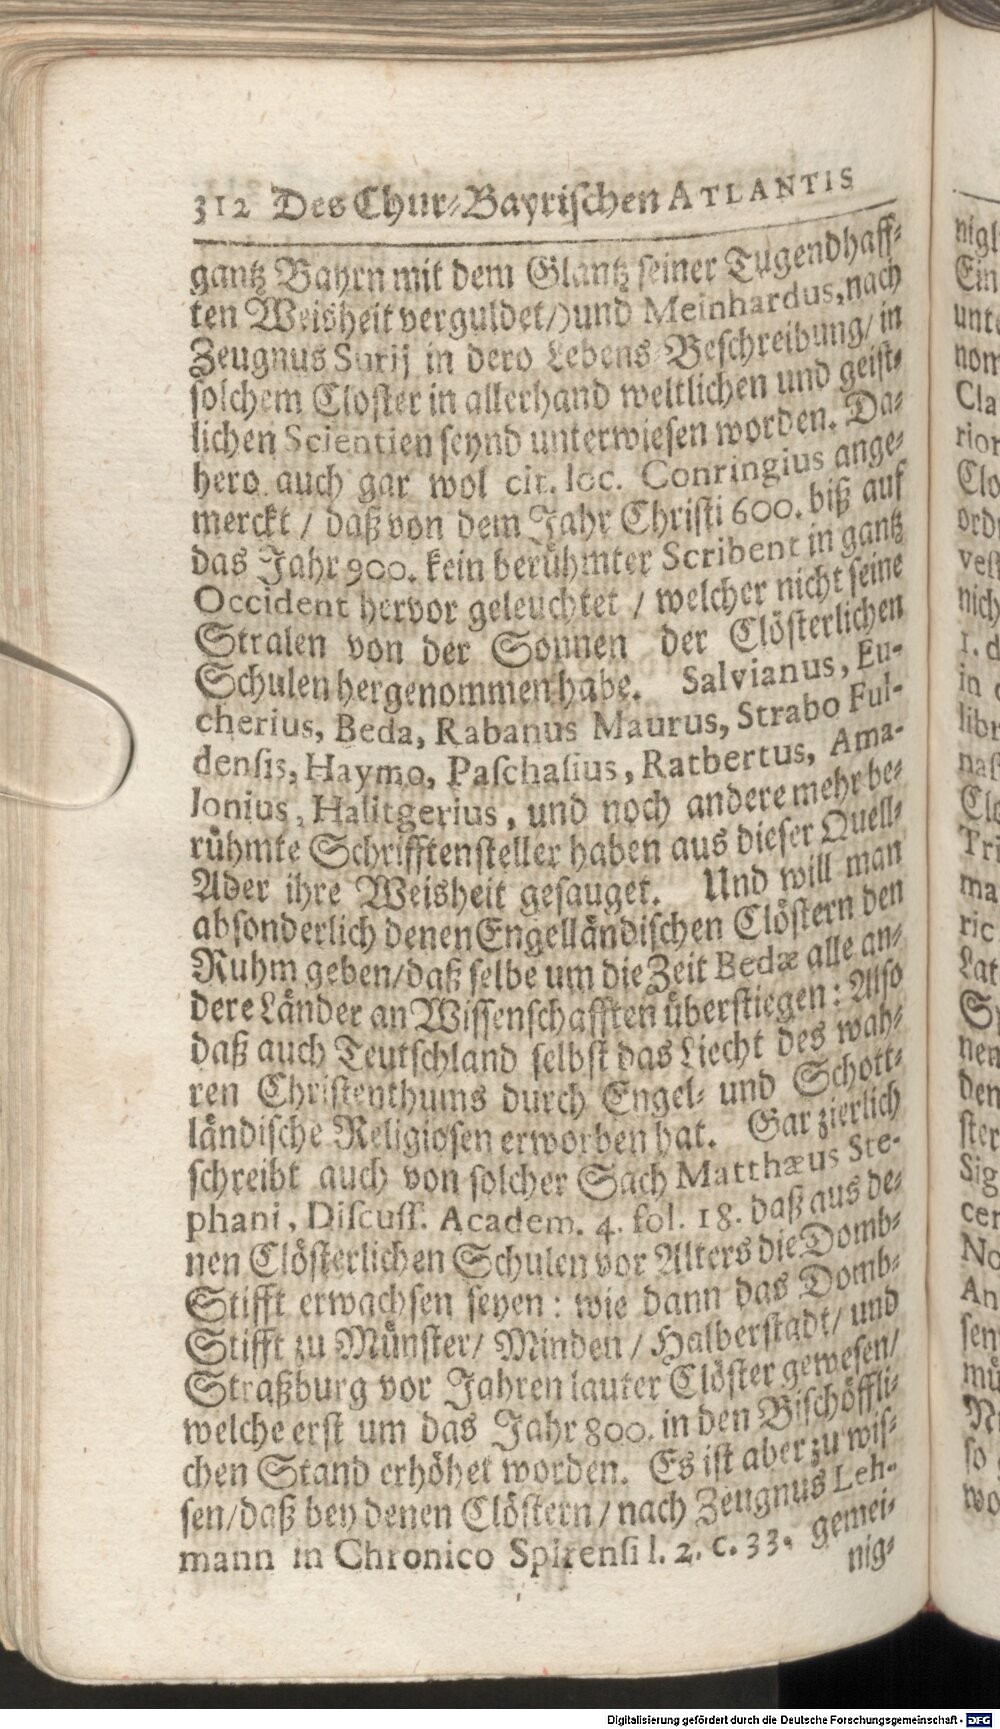 312 Des Chur-Bayrischen ATLANTIS
gantz Bayrn mit dem Glantz seiner Tugendhaff-
ten Weisheit verguldet/) und Meinhardus, nach
Zeugnus Surij in dero Lebens-Beschreibung/ in
solchem Closter in allerhand weltlichen und geist-
lichen Scientien seynd unterwiesen worden. Da-
hero auch gar wol cit. loc. Conringius ange-
merckt / daß von dem Jahr Christi 600. biß auf
das Jahr 900. kein berühmter Scribent in gantz
Occident hervor geleuchtet / welcher nicht seine
Stralen von der Sonnen der Clösterlichen
Schulen hergenommen habe. Salvianus, Eu-
cherius, Beda, Rabanus Maurus, Strabo Ful-
densis, Haymo, Paschasius, Ratbertus, Ama-
lonius, Halitgerius, und noch andere mehr be-
rühmte Schrifftensteller haben aus dieser Quell-
Ader ihre Weisheit gesauget. Und will man
absonderlich denen Engelländischen Clöstern den
Ruhm geben/ daß selbe um die Zeit Bedæ alle an-
dere Länder an Wissenschafften überstiegen: Also
daß auch Teutschland selbst das Liecht des wah-
ren Christenthums durch Engel- und Schott-
ländische Religiosen erworben hat. Gar zierlich
schreibt auch von solcher Sach Matthæus Ste-
phani, Discuss. Academ. 4. fol. 18. daß aus de-
nen Clösterlichen Schulen vor Alters die Domb-
Stifft erwachsen seyen: wie dann das Domb-
Stifft zu Münster/ Minden / Halberstadt/ und
Straßburg vor Jahren lauter Clöster gewesen/
welche erst um das Jahr 800. in den Bischöffli-
chen Stand erhöhet worden. Es ist aber zu wis-
sen/ daß bey denen Clöstern / nach Zeugnus Leh-
mann in Chronico Spirensi l. 2. c. 33. gemei-
nig-
nigl
Ein
unt
nom
Cla
rior
Clo
ord
vest
nich
1. d
in
libr
nas
Clo
Tri
ma
ric
Lat
nen
den
ster
Sig
cer
No
An
sen
mü
Ni
so
wo
Digitalisierung gefördert durch die Deutsche Forschungsgemeinschaft - DFG